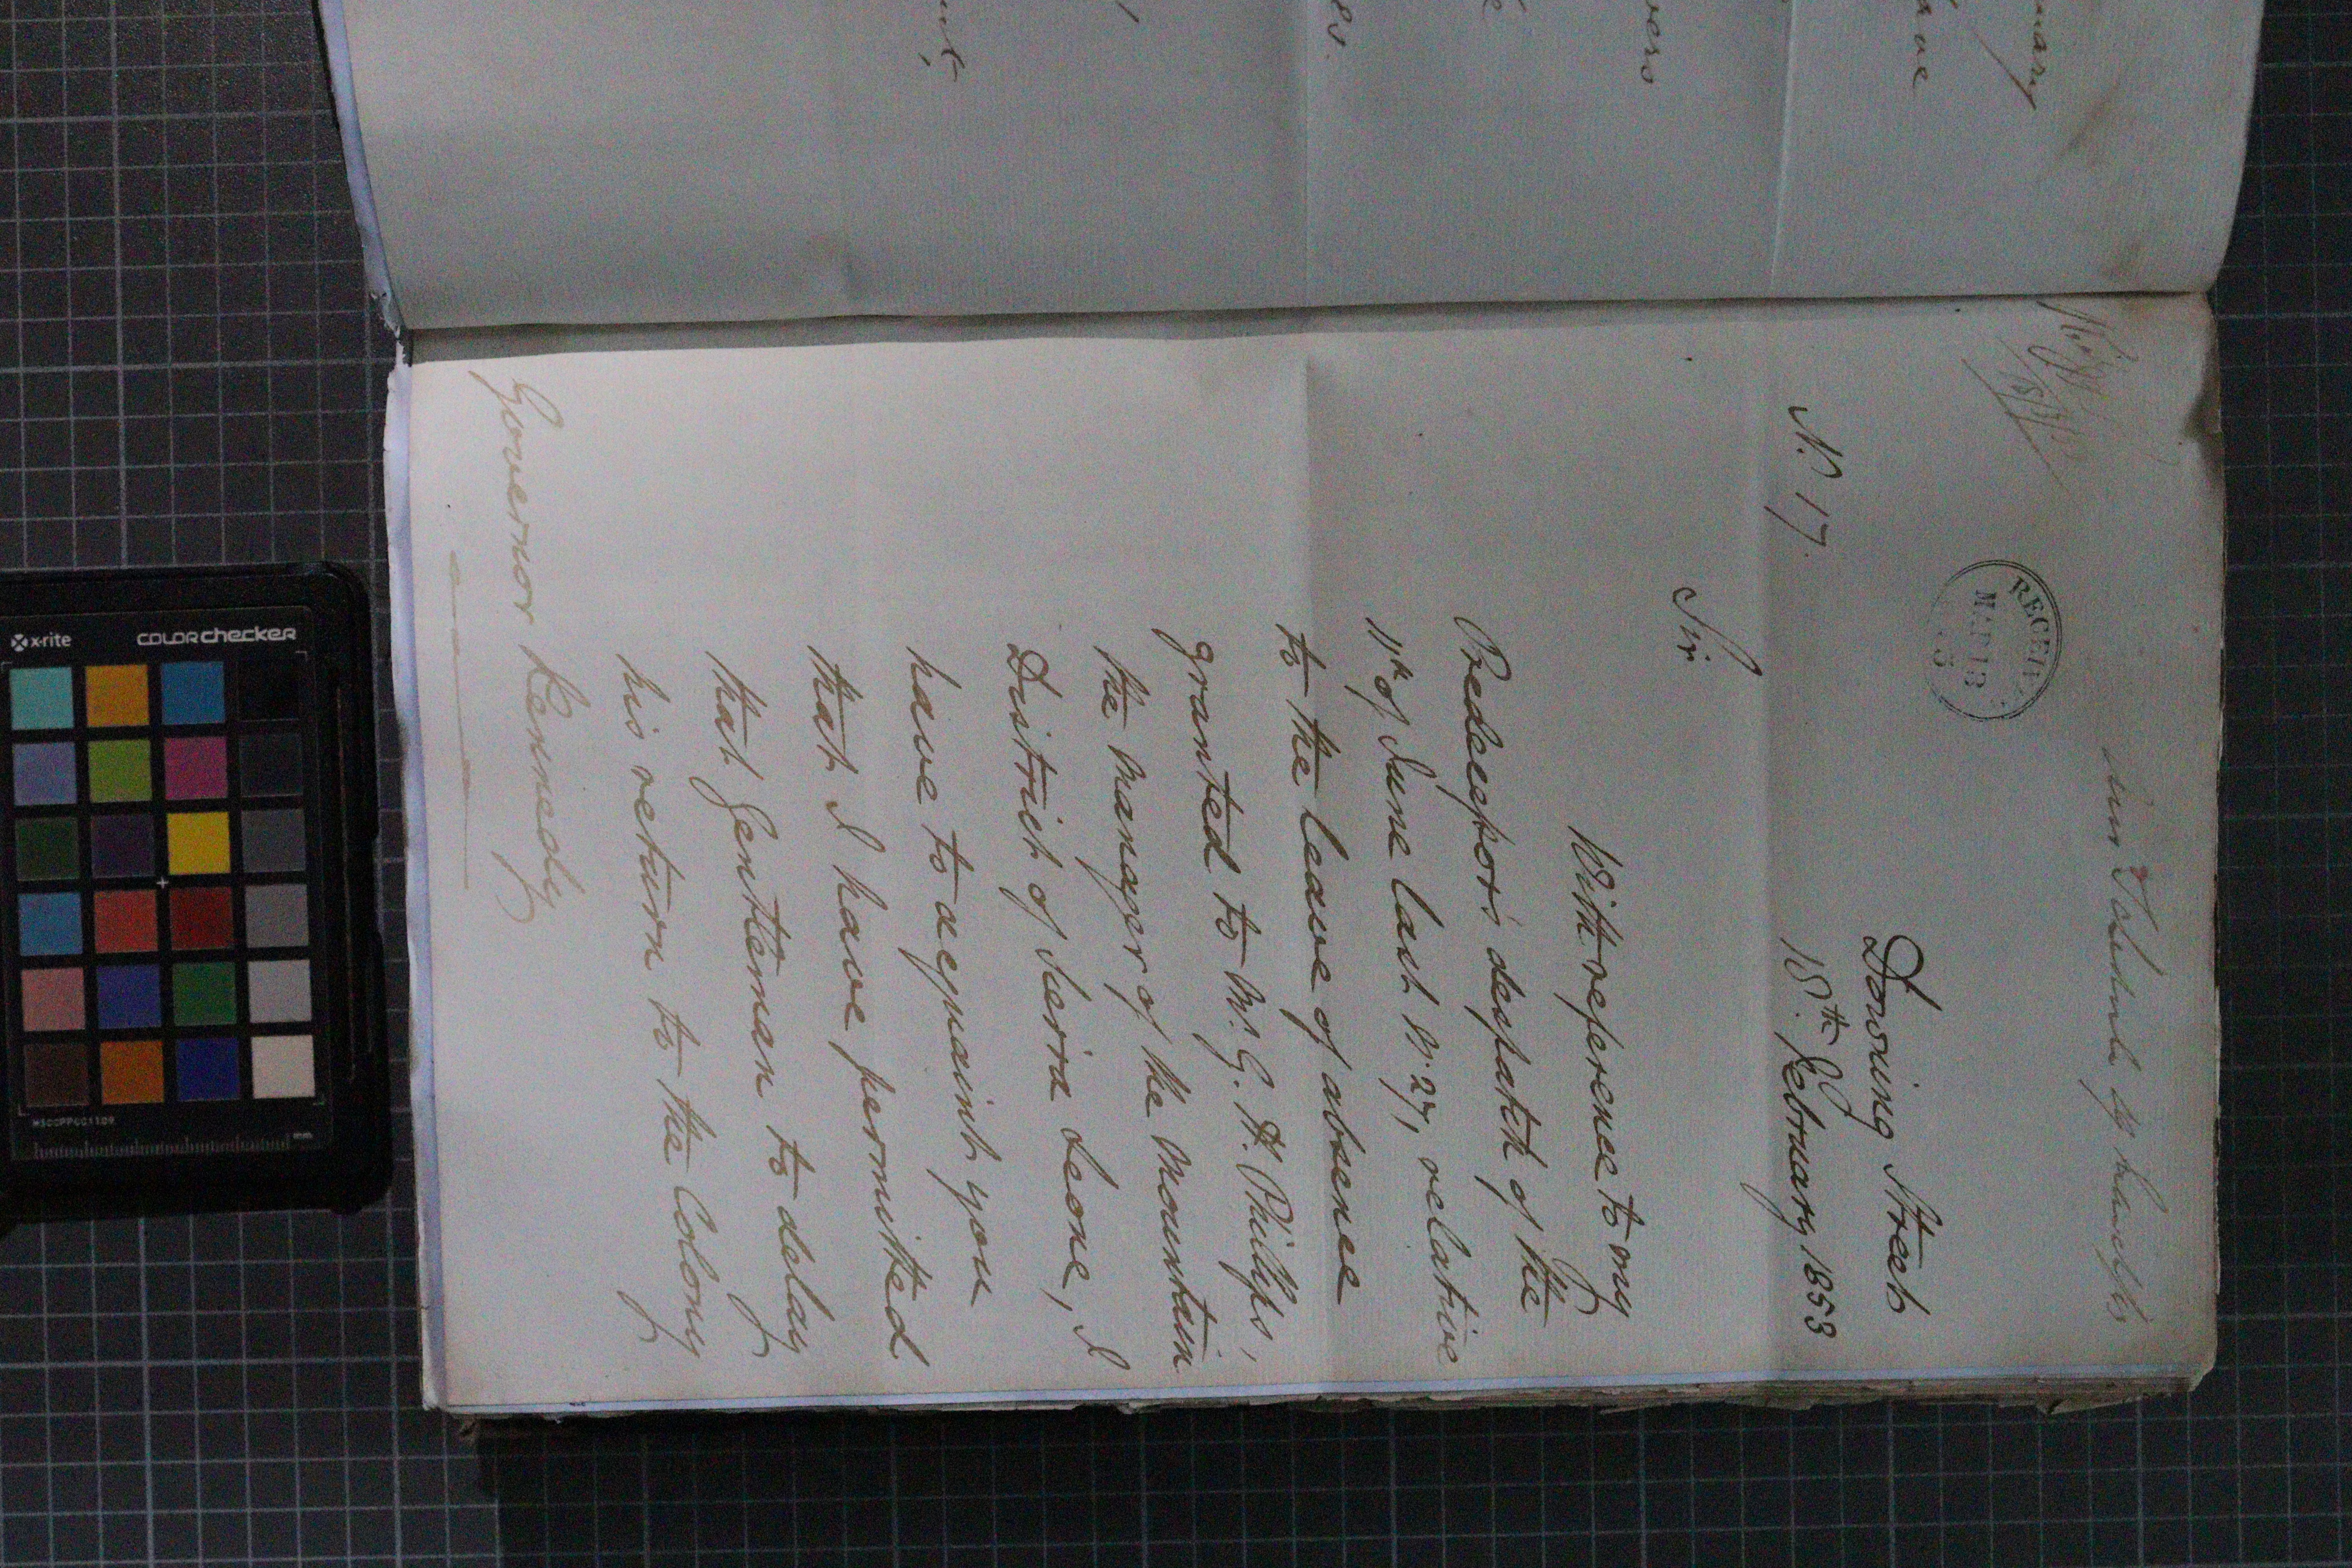 RECEIV
MAR 13
Downing Street
18th February 1853
No. 17.
Sir
With reference to my
Predecessor's despatch of the
11th of June last No. 27, relative
to the leave of absence
granted to Mr. G. H. Phillips,
the manager of the Mountain
District of Sierra Leone, I
have to acquaint you
that I have permitted
that Gentleman to delay
his return to the Colony
Governor Kennedy
x-rite
colorchecker
mm